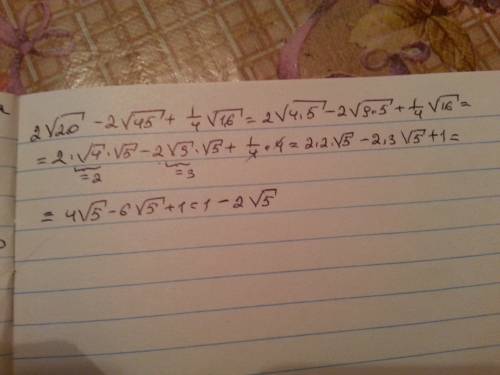 2√20 - 2√45 + 1/4 √16 = 2√4.5 - 2√9.5 + 1/4 √16 =
= 2.√4.√5 - 2√9.√5 + 1/4 . 4 = 2.2.√5 - 2.3√5 + 1 =
=2 =3
= 4√5 - 6√5 + 1 = 1 - 2√5